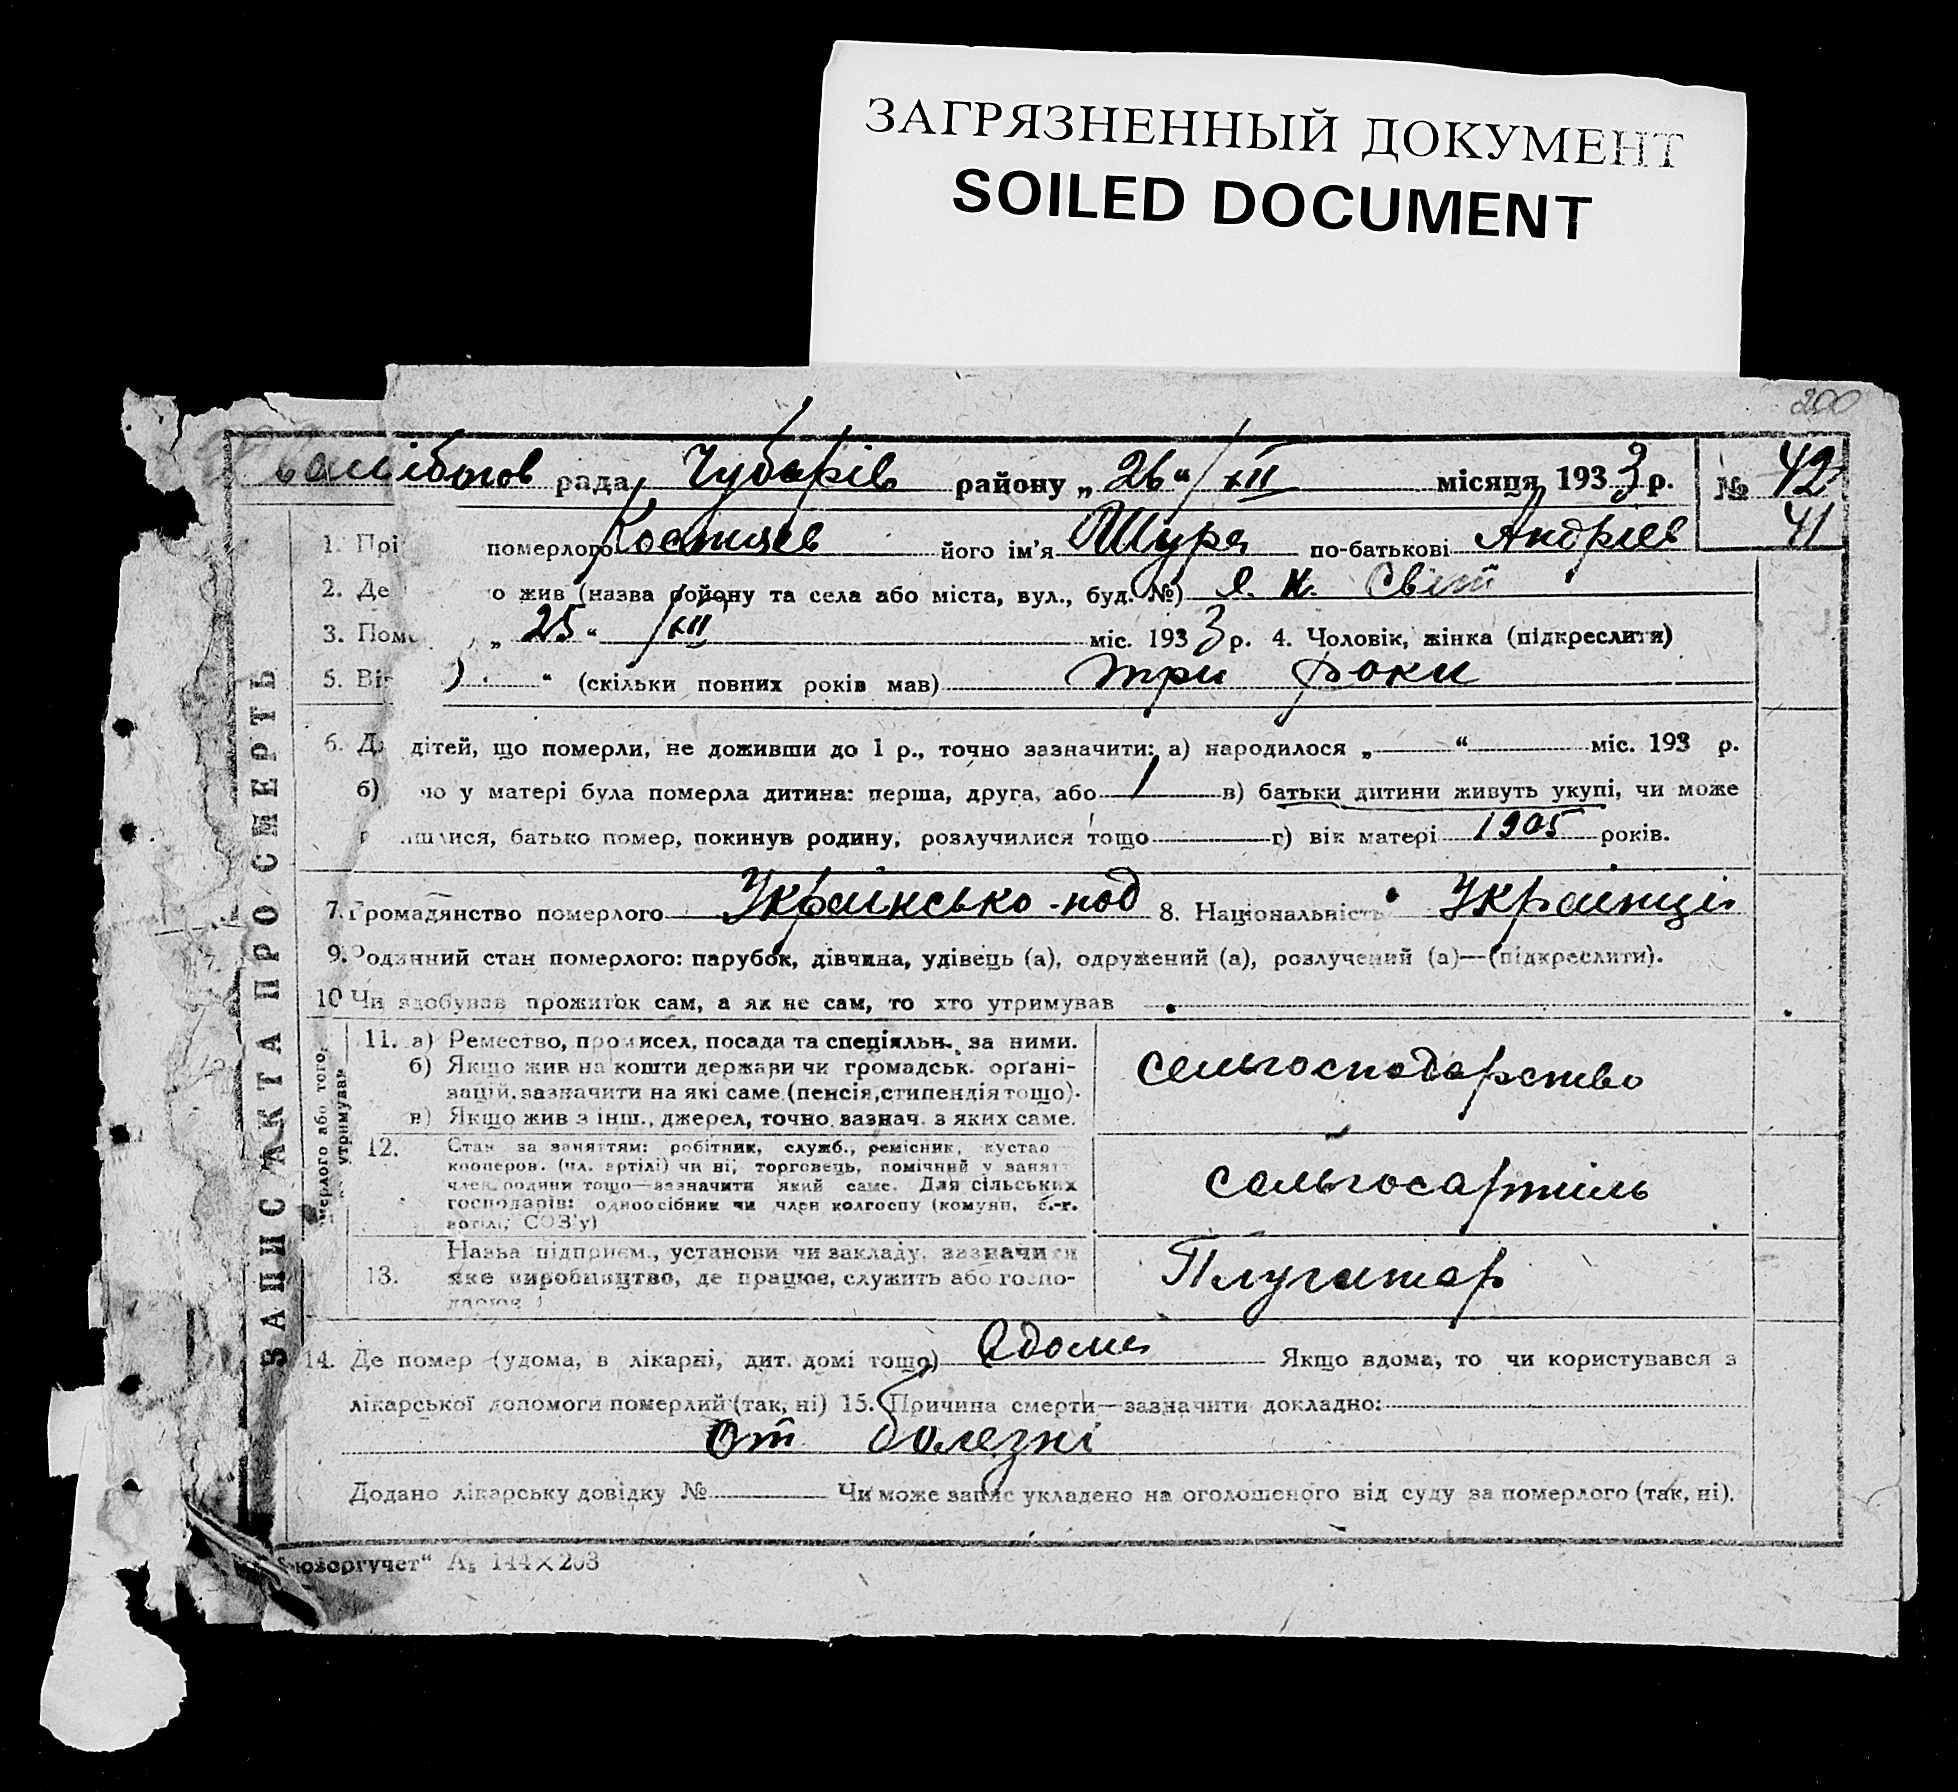 ЗАГРЯЗНЕННЫЙ ДОКУМЕНТ
SOILED DOCUMENT
200
рада, Чубарів району „26“ XII місяця 1933 р. № 42
41
1. Прі померлого Костиєв його ім’я Шура по-батькові Андрієв
2. Де о жив (назва району та села або міста, вул., буд. №) Я. К. Світ
3. Пом „25“ XII міс. 1933 р. 4. Чоловік, жінка (підкреслити)
5. Вік “ (скільки повних років мав) три роки
6. Д дітей, що померли, не доживши до 1 р., точно зазначити: а) народилося „ “ міс. 193 р.
б) що у матері була померла дитина: перша, друга, або 1 в) батьки дитини живуть укупі, чи може
йшлися, батько помер, покинув родину, розлучилися тощо г) вік матері 1905 років.
7. Громадянство померлого Українсько-под 8. Національність Українці
9. Родинний стан померлого: парубок, дівчина, удівець (а), одружений (а), розлучений (а)—(підкреслити).
10 Чи здобував прожиток сам, а як не сам, то хто утримував
ЗАПИС АКТА ПРО СМЕРТЬ
мерлого або того,
утримував
11. а) Ремество, промисел, посада та спеціяльн. за ними.
б) Якщо жив на кошти держави чи громадськ. органі-
зацій, зазначити на які саме (пенсія, стипендія тощо).
в) Якщо жив з інш., джерел, точно зазнач. з яких саме.
сельгосподарство
12. Стан за заняттям: робітник, служб., ремісник, кустар
кооперов. (чл. артілі) чи ні, торговець, помічний у занят
член родини тощо—зазначити який саме. Для сільських
господарів: одноосібник чи член колгоспу (комуни, с.-г.
артілі, СОЗ’у)
сельгосартиль
13. Назва підприєм., установи чи закладу, зазначити
яке виробництво, де працює, служить або госпо-
дарює)
Плугатар
14. Де помер (удома, в лікарні, дит. домі тощо) Вдома Якщо вдома, то чи користувався з
лікарської допомоги померлий (так, ні) 15. Причина смерти—зазначити докладно:
От болезні
Додано лікарську довідку № Чи може запис укладено на оголошеного від суду за померлого (так, ні).
юзоргучет“ А₅ 144×203